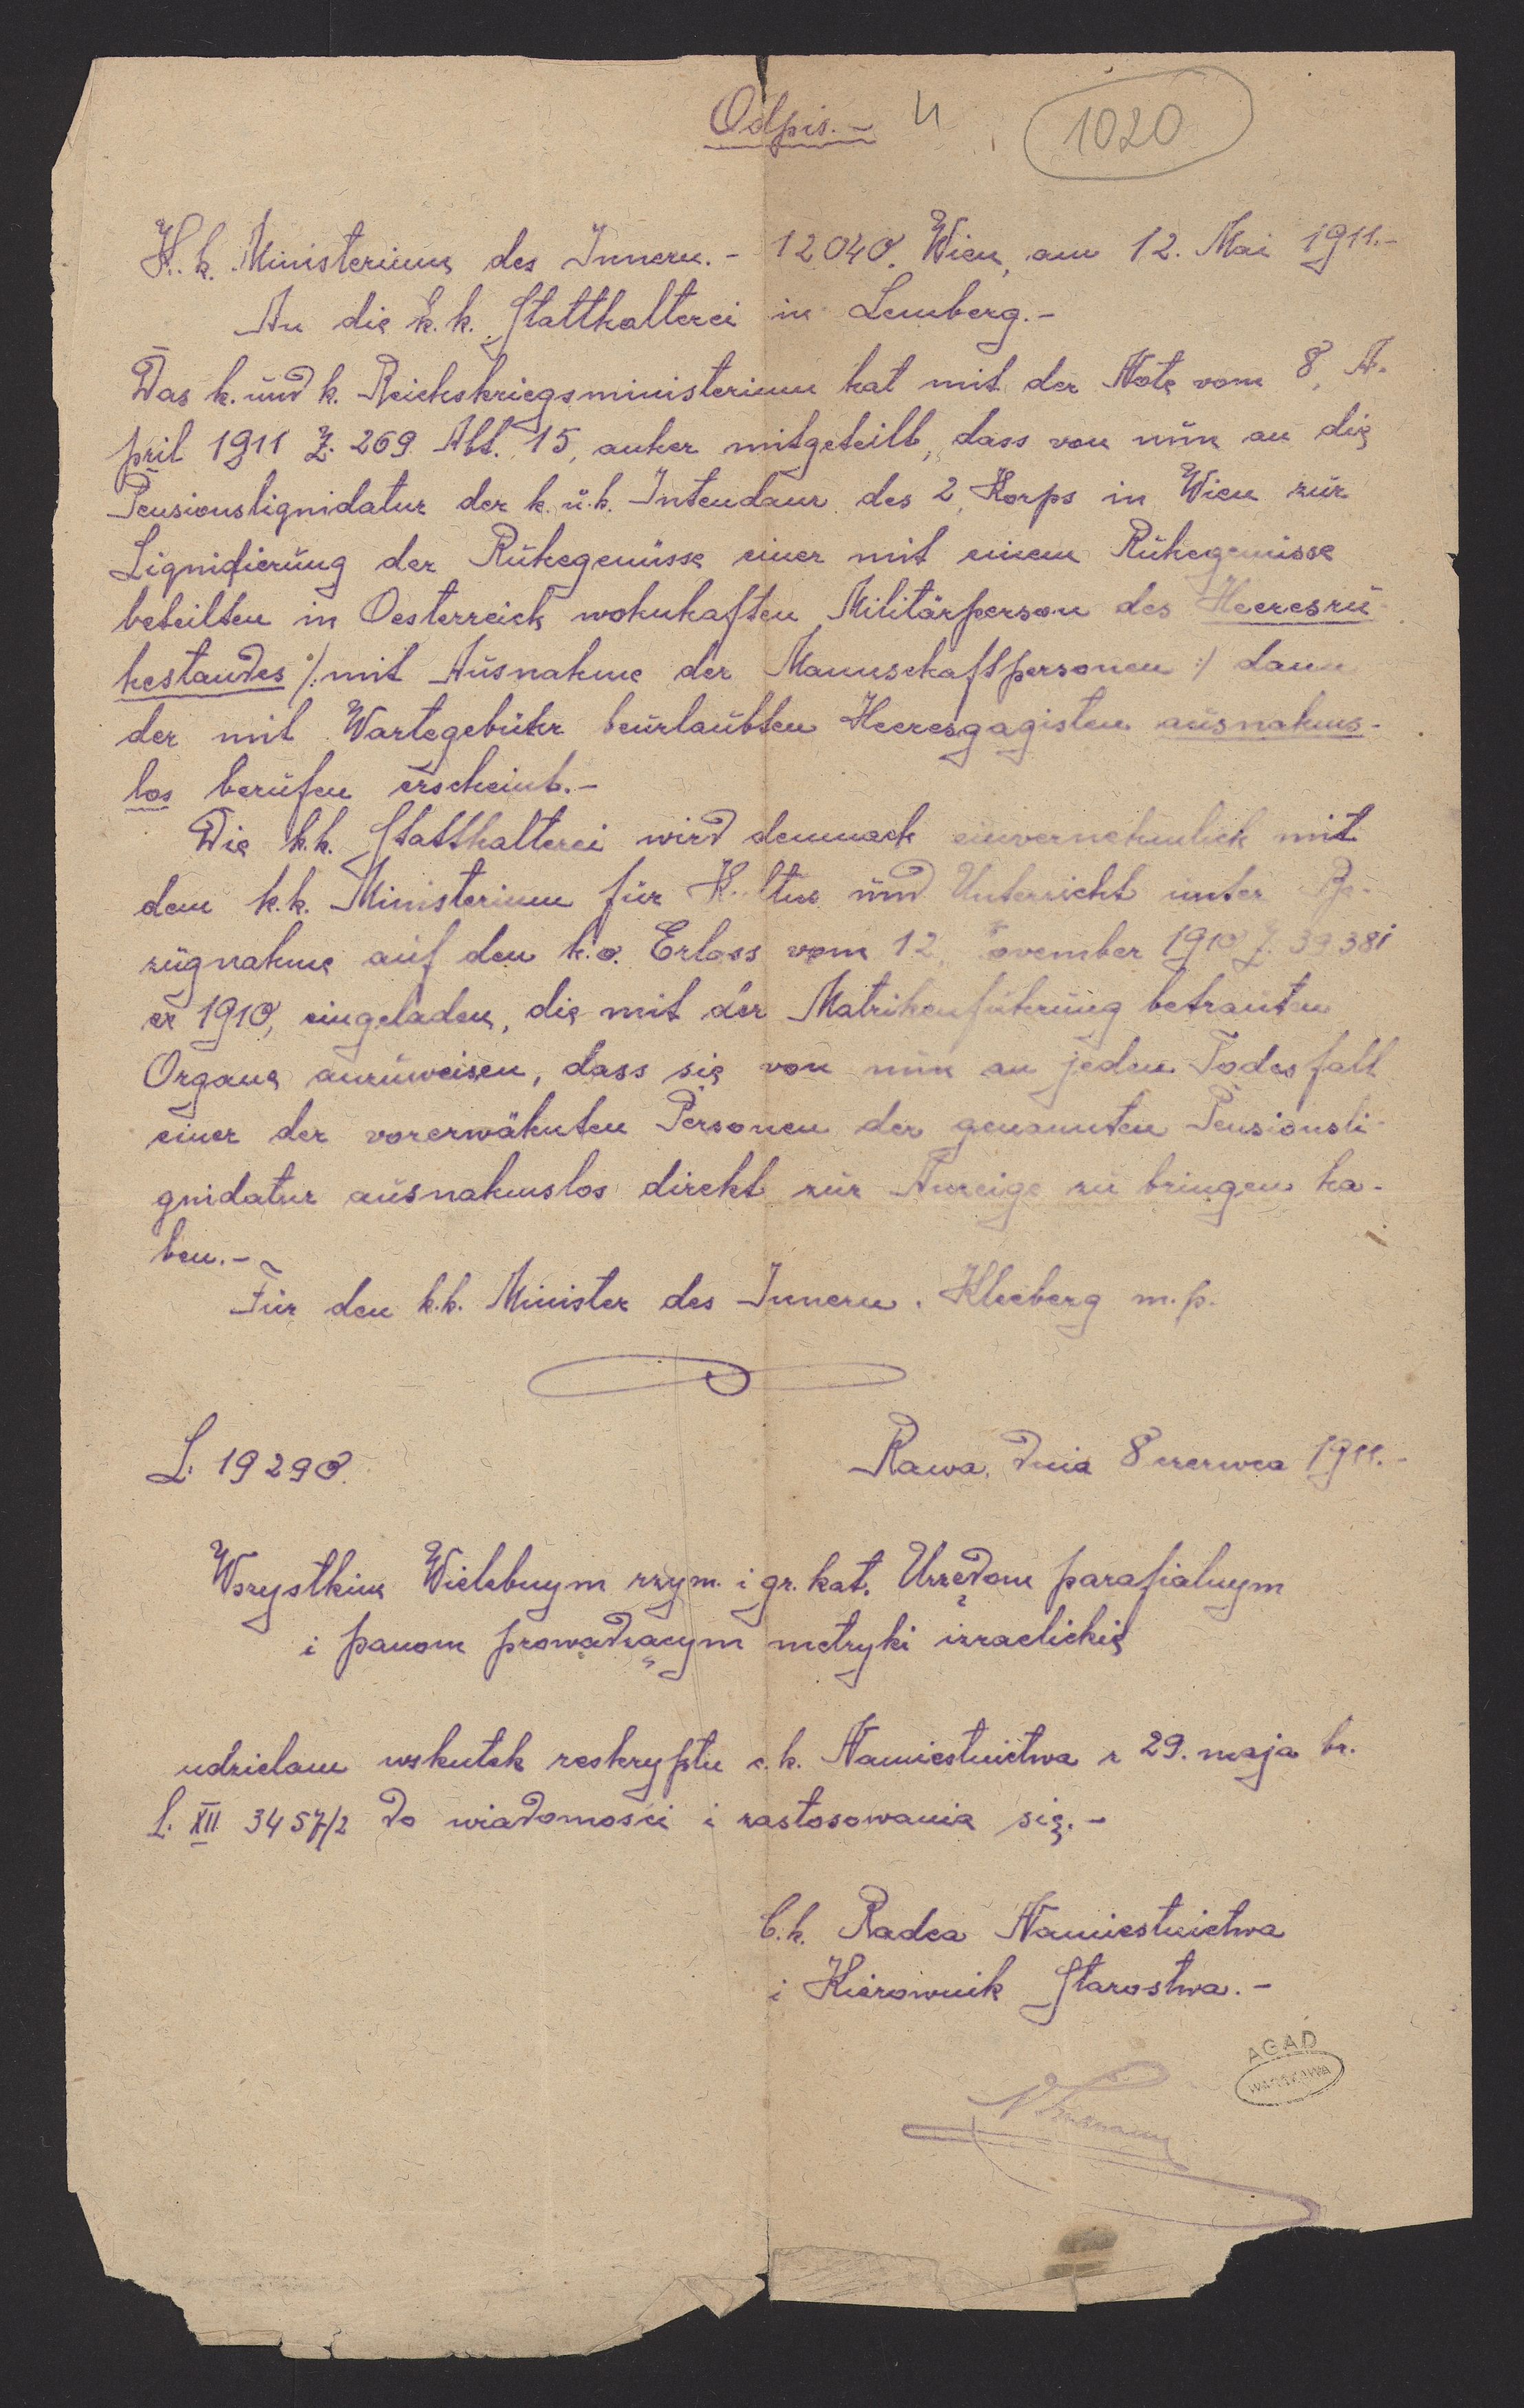 Odpis.- 4 1020
K. k. Ministerium des Innern.- 12040. Wien, am 12. Mai 1911.-
An die k. k. Statthalterei in Lemberg.-
Das k. und k. Reichskriegsministerium hat mit der Note vom 8. A-
pril 1911 Z. 269 Abt. 15, anher mitgeteilt, dass von nun an die
Pensionsliquidatur der k. u. k. Intendanz des 2. Korps in Wien zur
Liquidierung der Ruhegenüsse einer mit einem Ruhegenusse
beteilten in Oesterreich wohnhaften Militärperson des Heeresru-
hestandes /: mit Ausnahme der Mannschaftpersonen :/ dann
der mit Wartegebühr beurlaubten Heeresgagisten ausnahms-
los berufen erscheint.-
Die k.k. Statthalterei wird demnach einvernehmlich mit
dem k.k. Ministerium für Kultus und Unterricht unter Be-
zugnahme auf den h.o. Erlass vom 12. November 1910 Z. 39381
ex 1910, eingeladen, die mit der Matrikenführung betrauten
Organe anzuweisen, dass sie von nun an jeden Todesfall
einer der vorerwähnten Personen der genannten Pensionsli-
quidatur ausnahmslos direkt zur Anzeige zu bringen ha-
ben.-
Für den k.k. Minister des Innern. Kleeberg m.p.
L. 19290. Rawa, dnia 8 czerwca 1911.-
Wszystkim Wielebnym rzym. i gr. kat. Urzędom parafialnym
i panom prowadzącym metryki izraelickie
udzielam wskutek reskryptu c. k. Namiestnictwa z 29. maja br.
L. XII 3457/2 do wiadomości i zastosowania się.-
C.k. Radca Namiestnictwa
i Kierownik Starostwa.-
AGAD
WARSZAWA